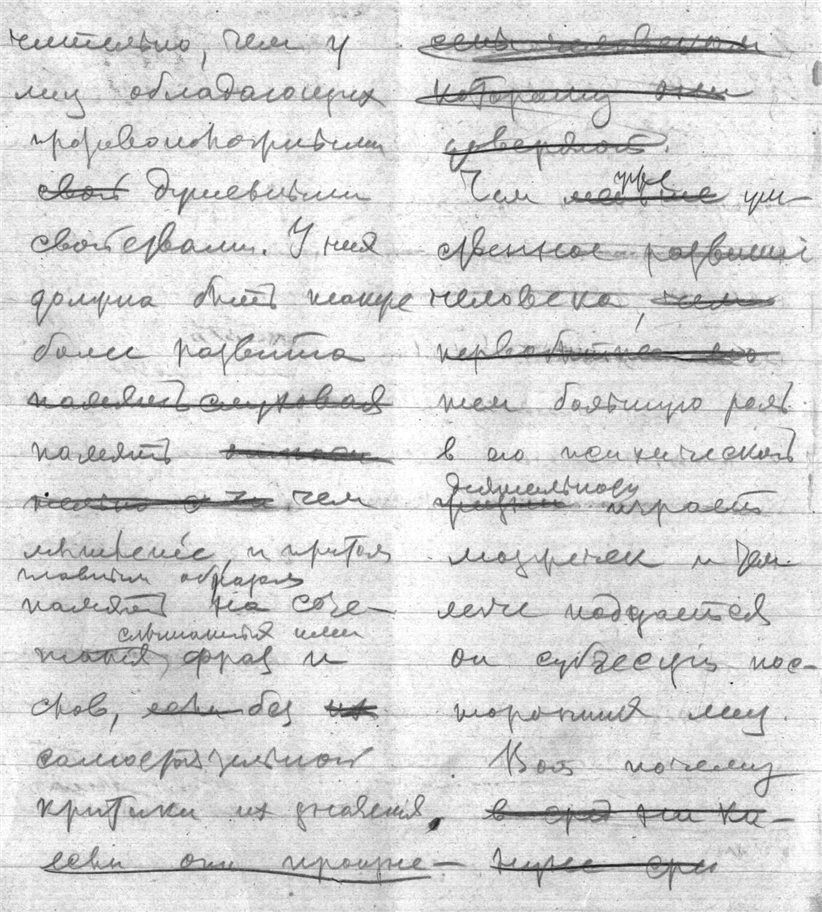 чительно, чем у
лиц обладающих
противоположными
свои душевными
свойствами. У них
должна быть также
более развита
память слуховая
память
чем
мышление и притом
главным образом
память на соче-
слышанных ими
тания фраз и
слов, если без их
самостоятельной
критики их значения,
если они проис-
сены человеком
которому они
доверяют.
Чем ум-
ственное развитие
человека, чем
первобытнее его
тем большую роль
в его психической
деятельности
жизни играет
мозжечек и тем
легче поддается
он суггестии пос-
торонних лиц.
Вот почему
в сред ни ка-